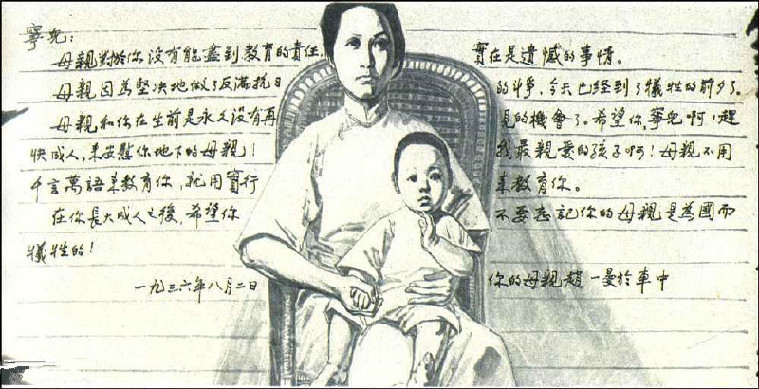 寧兒:
母親對於你没有能盡到教育的責任,實在是遺憾的事情。
母親因為堅决地做了反滿抗日的斗争,今天已經到了犧牲的前夕了。
母親和你在生前是永久没有再見的機會了。希望你,寧兒啊!趕
快成人,來安慰你地下的母親!我最親愛的孩子啊!母親不用
千言萬語來教育你,就用實行來教育你。
在你長大成人之後,希望你不要忘記你的母親是為國而
犧牲的!
一九三六年八月二日 你的母親趙一曼於車中